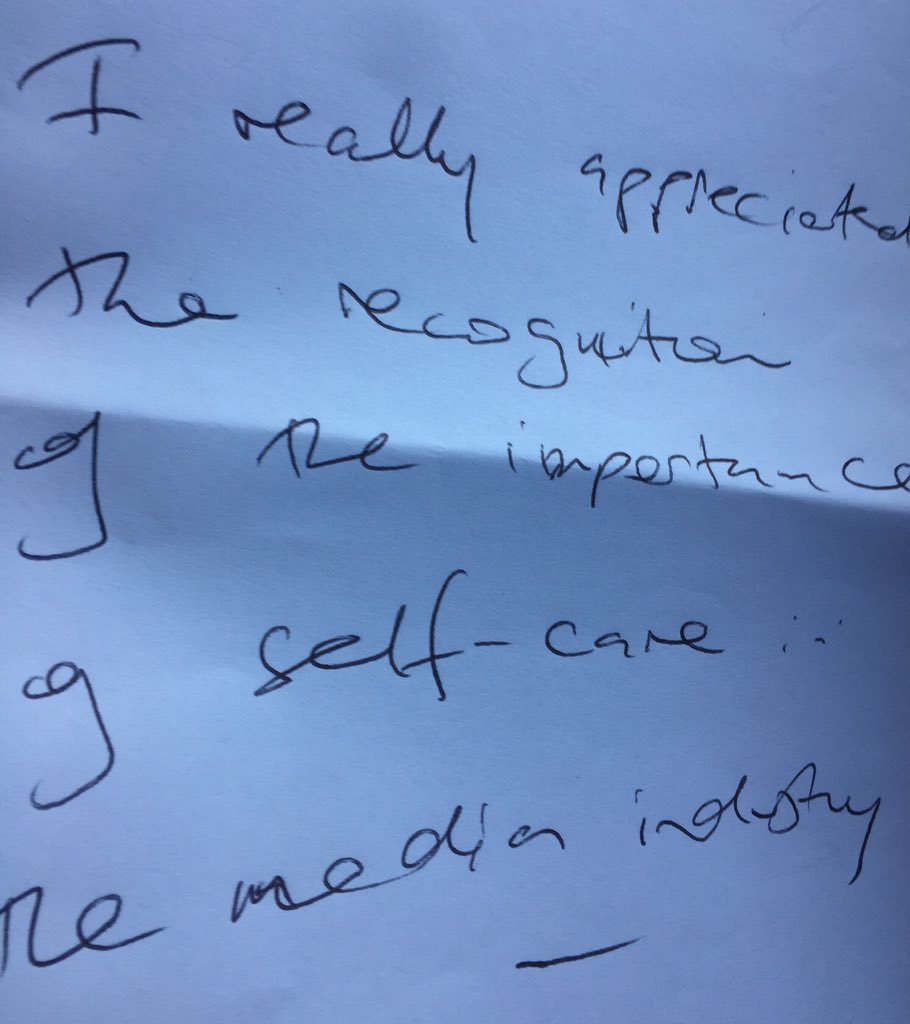 I really appreciated
the recognition
of the importance
of self-care in
the media industry